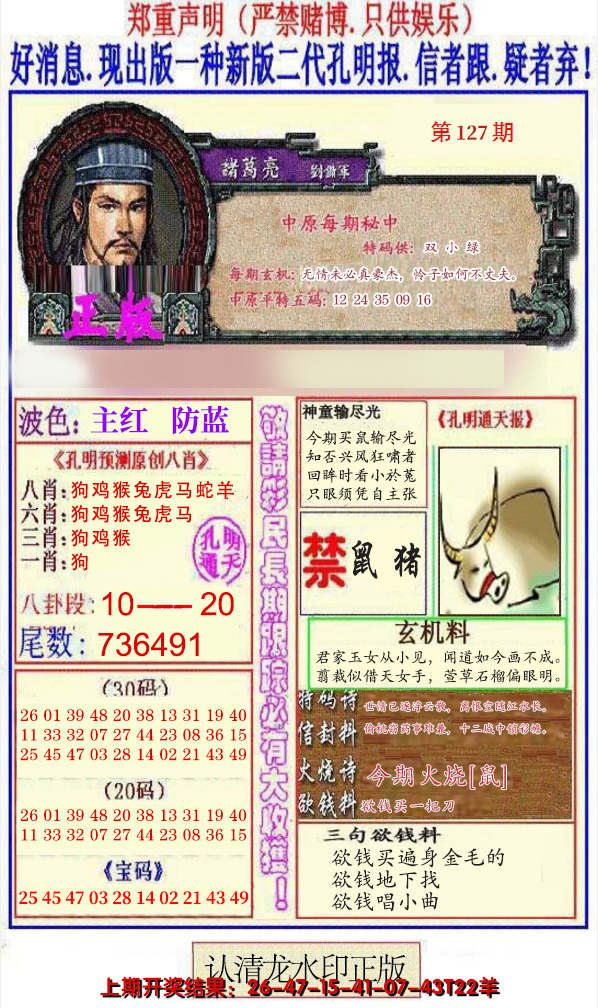 郑重声明（严禁赌博.只供娱乐）
好消息.现出版一种新版二代孔明报.信者跟.疑者弃!
第127期
諸葛亮 劉備軍
中原每期秘中
特码供：双 小 绿
每期玄机:无情未必真豪杰，怜子如何不丈夫。
中原平特五码:12 24 35 09 16
正版
波色：主红 防蓝
《孔明预测原创八肖》
八肖:狗鸡猴兔虎马蛇羊
六肖:狗鸡猴兔虎马
三肖:狗鸡猴
一肖:狗
孔明
通天
八卦段:10——20
尾数：736491
敬請彩民長期跟踪必有大收獲！
神童输尽光
今期买鼠输尽光
知否兴风狂啸者
回眸时看小於菟
只眼须凭自主张
《孔明通天报》
禁鼠 猪
玄机料
君家玉女从小见，闻道如今画不成。
翦裁似借天女手，萱草石榴偏眼明。
（30码）
26 01 39 48 20 38 13 31 19 40
11 33 32 07 27 44 23 08 36 15
25 45 47 03 28 14 02 21 43 49
（20码）
26 01 39 48 20 38 13 31 19 40
11 33 32 07 27 44 23 08 36 15
《宝码》
25 45 47 03 28 14 02 21 43 49
特码诗 世情已逐浮云散，离恨空随江水长。
信封料 偷桃窃药事难兼，十二城中锁彩蟾。
火烧诗 今期火烧[鼠]
欲钱料 欲钱买一把刀
三句欲钱料
欲钱买遍身金毛的
欲钱地下找
欲钱唱小曲
认清龙水印正版
上期开奖结果：26-47-15-41-07-43T22羊